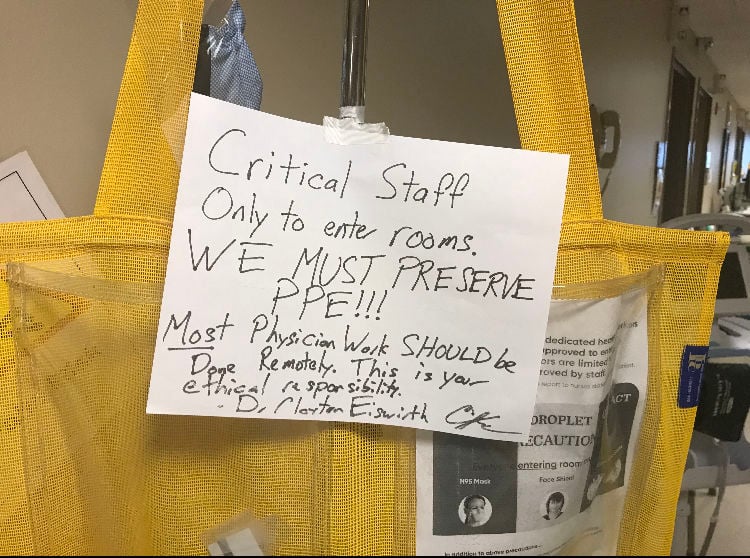 Critical Staff
Only to enter rooms.
WE MUST PRESERVE
PPE!!!
Most Physician Work SHOULD be
Done Remotely. This is your
ethical responsibility.
- Dr Clayton Eiswirth
dedicated
approved to
are limited
by staff
DROPLET
entering room
N95 Mask
Face Shield
In addition to above precautions